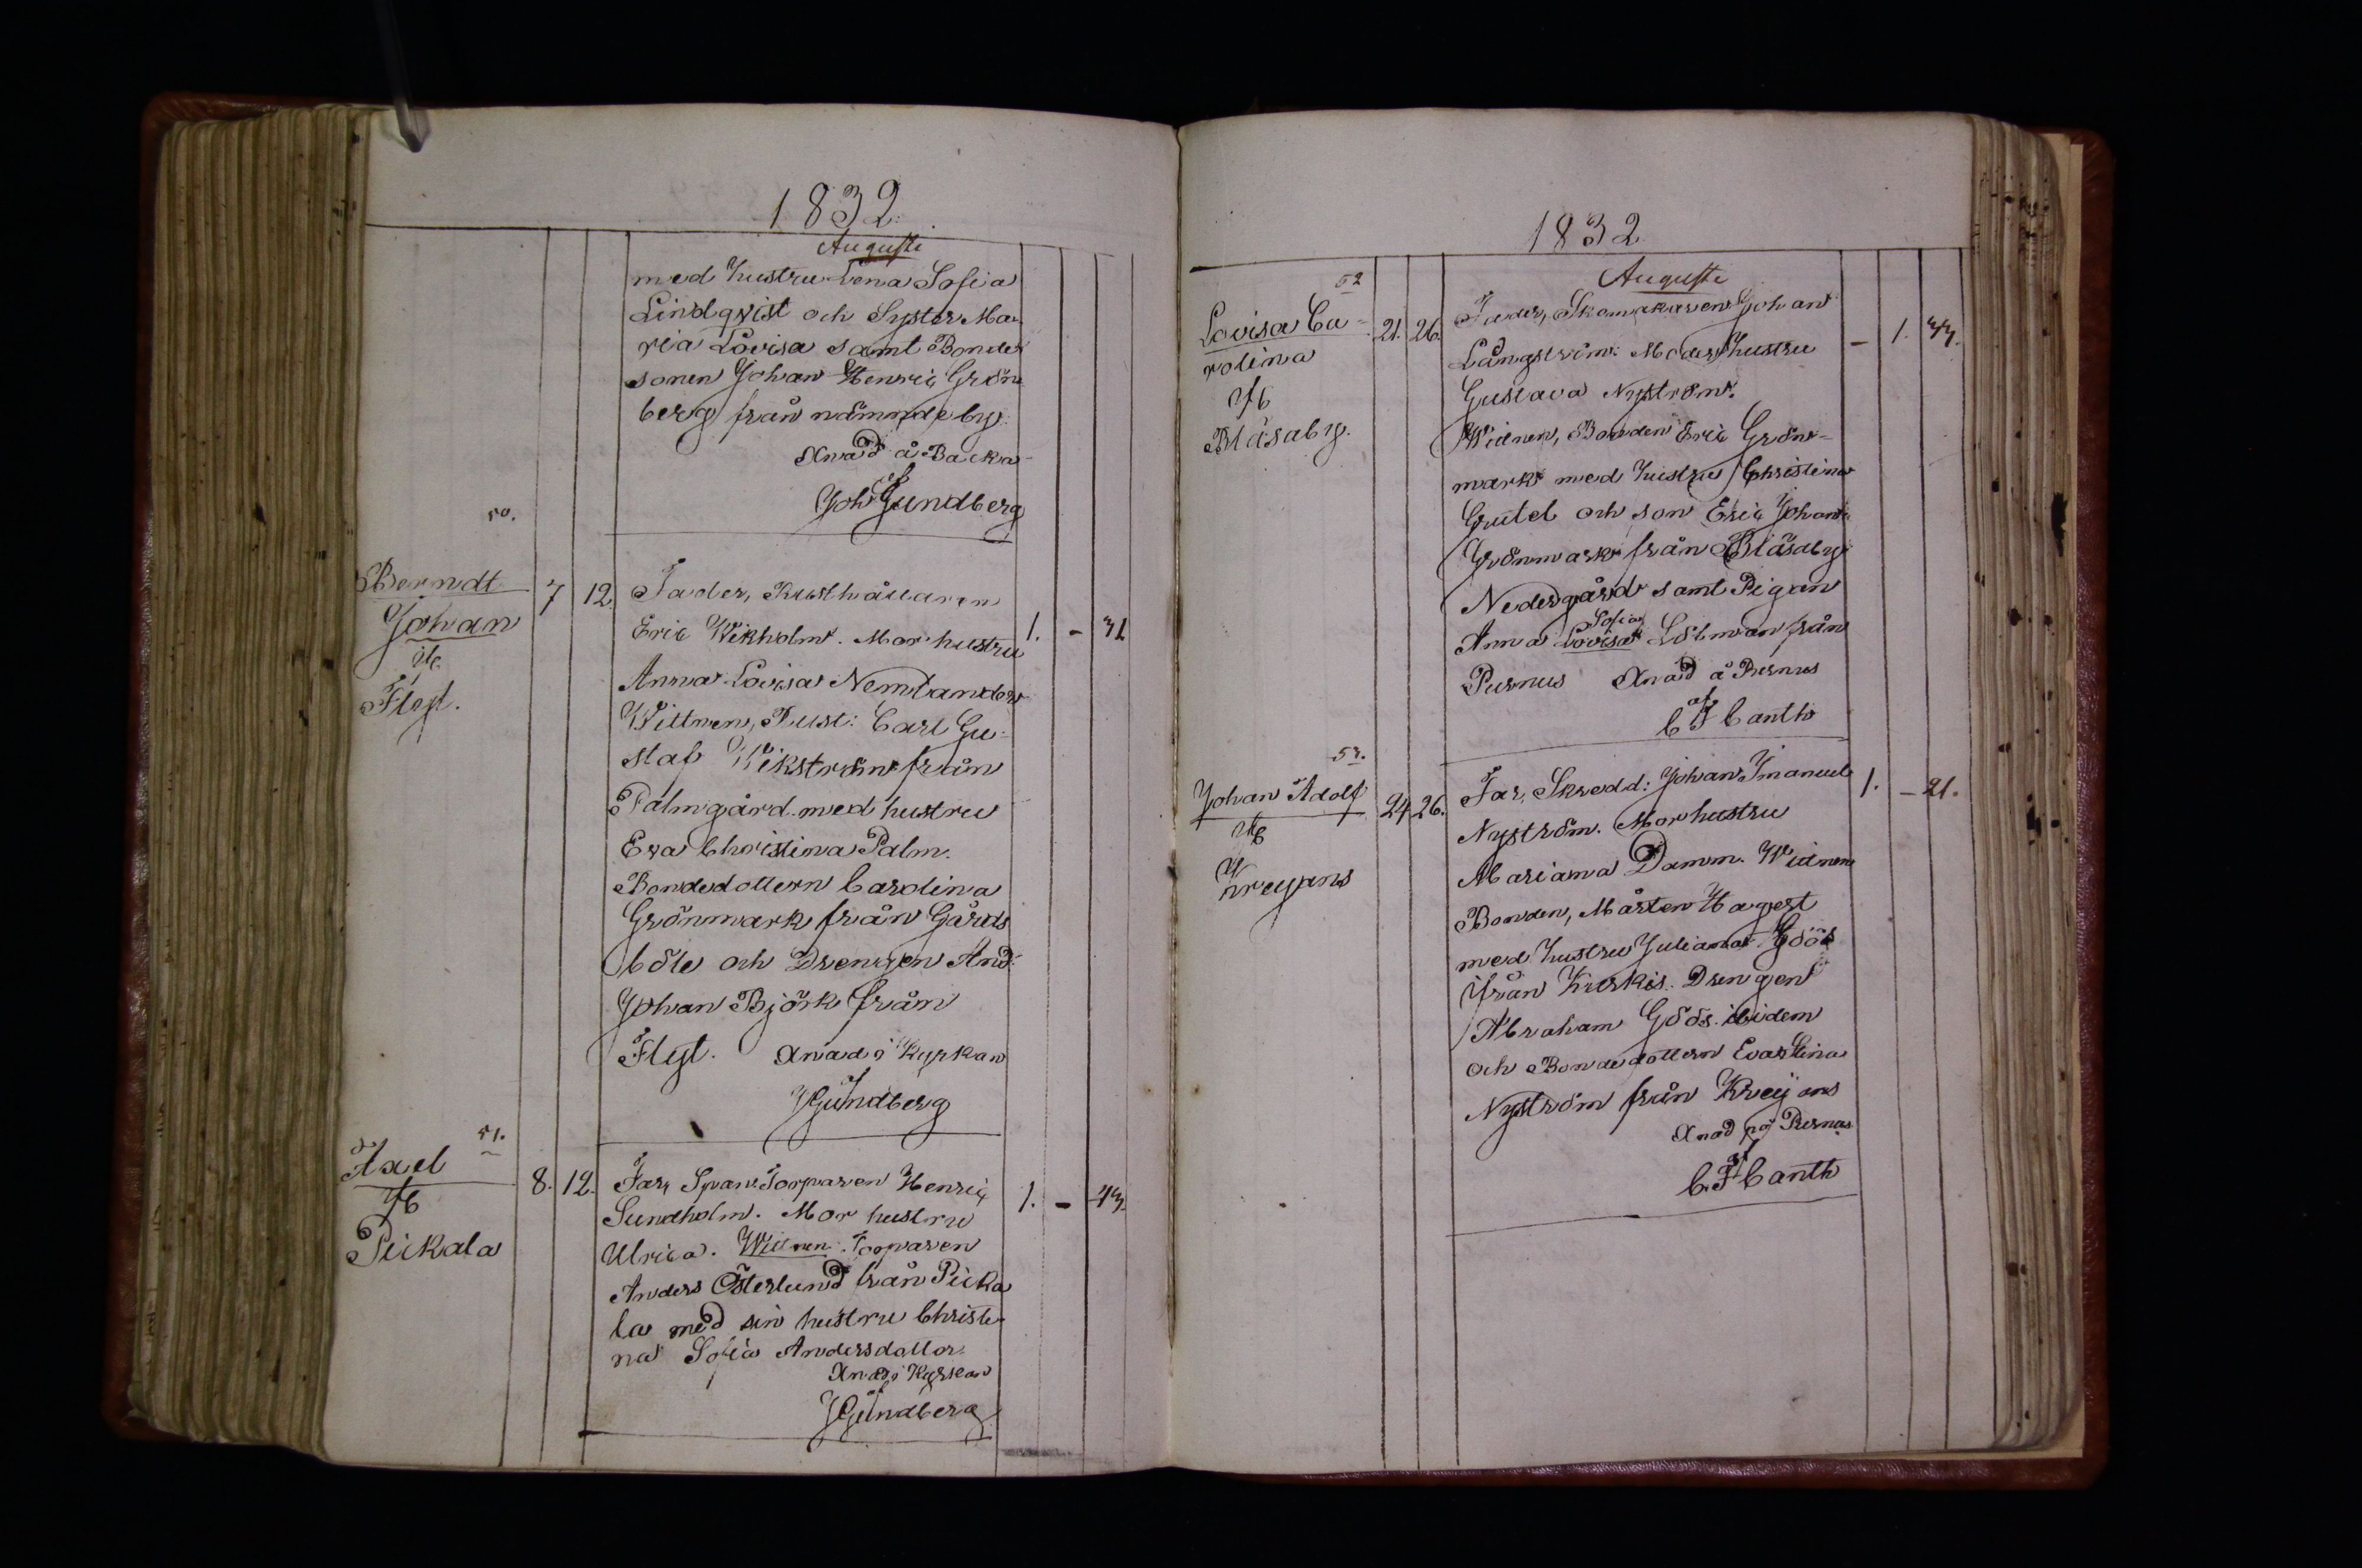 1832
Augusti
med hustru Lena Sofia
Lindqvist och Syster Ma-
ria Lovisa samt Bonde
sonen Johan Henric Grön
berg från nämnde by
Xnad å Backa
af
Joh Gundberg
50.
Berndt
Johan
Flyt.
7 12.
Fader, Rusthållaren
Eric Wikholm. Mor hustru
Anna Lovisa Nemlander
Wittnen, Rust: Carl Gu-
staf Wikström från
Palmgård med hustru
Eva Christina Palm.
Bondedottern Carolina
Grönmark från Gårds
böle och Drengen And:
Johan Björk från
Flyt. Xnad i Kyrkan
af
JGundberg
1. - 31
51.
Axel
Pickala
8. 12.
Far, Torparen Henric
Sundholm. Mor hustru
Ulrica. Wittnen. Torparen
Anders Österlund från Picka
la med sin hustru Christi-
na Sofia Andersdotter
Xnad i Kyrkan
af
JGundberg
1. - 43
1832
Augusti
52
Lovisa Ca-
rolina
Bläsaby.
21. 26.
Fader, Skomakaren Johan
Långström. Moder hustru
Gustava Nyström.
Witnen, Bonden Eric Grön-
mark med hustru Christina
och son Eric Johan
Grönmark från Bläsaby
Nedergård samt Pigan
Sofia
Anna Lovisa Löfman från
Purnus Xnad å Purnus
af
C F Canth
- 1. 33.
53.
Johan Adolf
Kreypans
24 26.
Far, Skredd: Johan Imanuel
Nyström. Mor hustru
Mariana Damm. Witnen
Bonden, Mårten Hagert
med hustru Juliana Göös
ifrån Kirkis. Drengen
Abraham Göös. ibidem
och Bondedottern Eva Stina
Nyström från
Xnad på Pernas
af
C.F Canth
1. - 21.